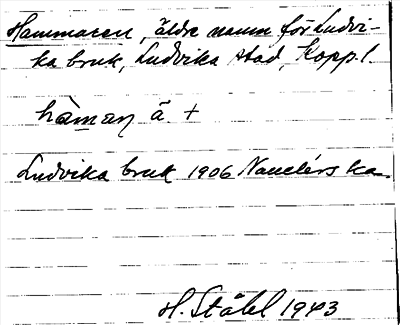 Hammaren, äldre namn för Ludvi-
ka bruk, Ludvika stad, Kopp.l.
hàmaṇ ä. +
Ludvika bruk 1906 Nauclérs ka.
H. Ståhl 1943